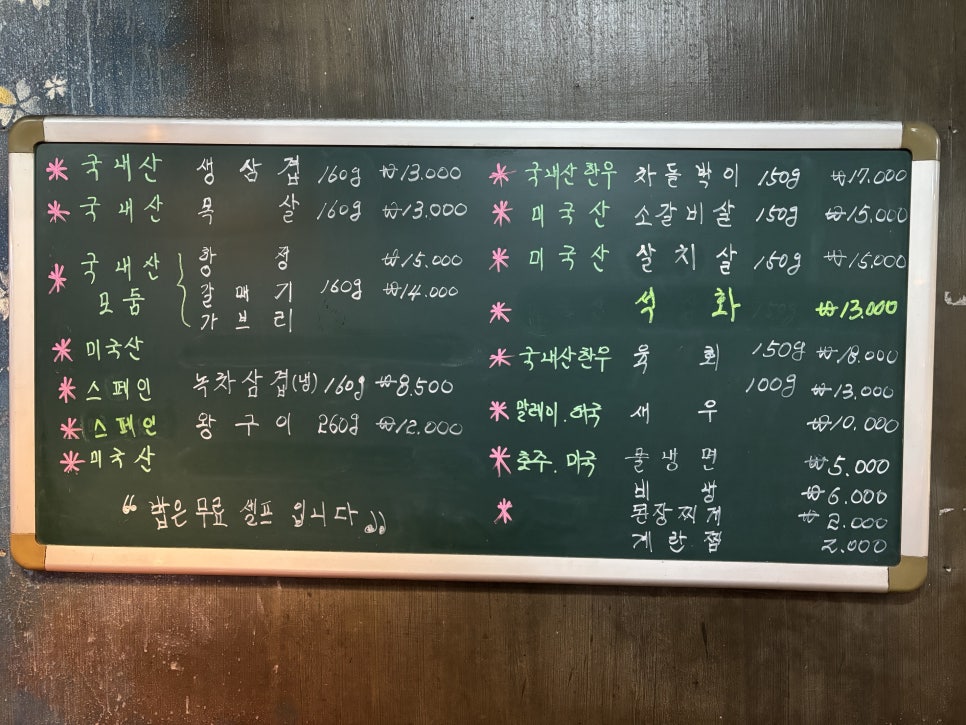 * 국내산 생삼겹 160g ₩13.000
* 국내산 목살 160g ₩13.000
항정 ₩15.000
* 국내산 모둠 { 갈매기 160g ₩14.000
가브리
* 미국산
* 스페인 녹차삼겹(냉) 160g ₩8.500
* 스페인 왕구이 260g ₩12.000
* 미국산
“ 밥은 무료 셀프 입니다 „
* 국내산한우 차돌박이 150g ₩17.000
* 미국산 소갈비살 150g ₩15.000
* 미국산 살치살 150g ₩15.000
* 석화 ₩13.000
* 국내산한우 육회 150g ₩18.000
100g ₩13.000
* 말레이.허국 새우 ₩10.000
* 호주.미국 물냉면 ₩5.000
비빔 ₩6.000
* 된장찌개 ₩2.000
계란찜 2.000